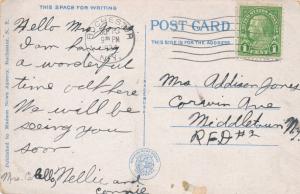 THIS SPACE FOR WRITING
POST CARD
THIS SIDE IS FOR THE ADDRESS
ROCHESTER
PM
N.Y.
1 CENT 1
Hello Mrs
I am having
a wonderful
time out here
We will be
seeing you
soon
Nellie and
Connie
Mrs. C.
Mrs Addison Jones
Corwin Ave
Middletown
RFD #2
Published by Manson News Agency, Rochester, N. Y.